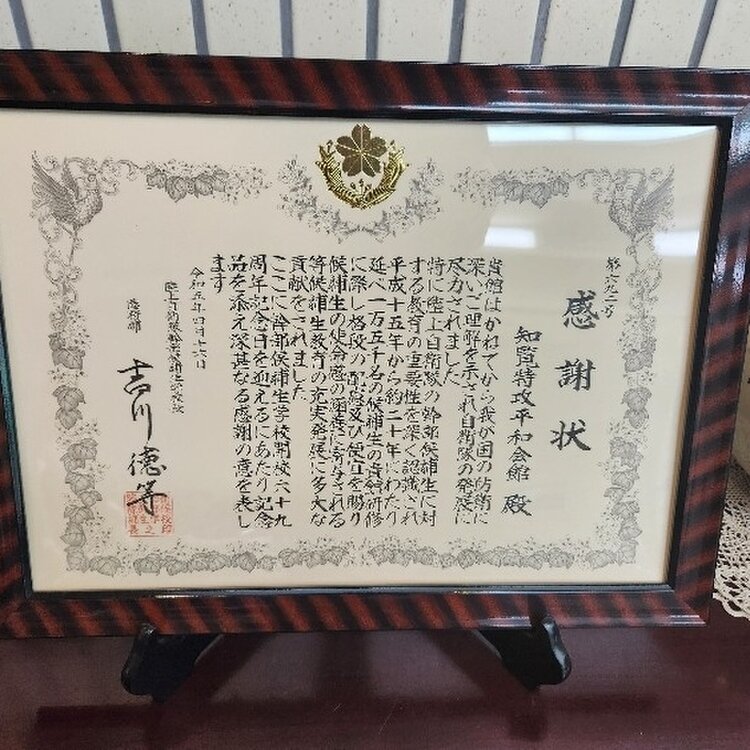 第一九二号
感謝状
知覧特攻平和会館 殿
貴館はかねてから我が国の防衛に
深いご理解を示され自衛隊の発展に
尽力されました
特に陸上自衛隊の幹部候補生に対
する教育の重要性を深く認識され
平成十五年から約二十年にわたり
延べ一万五千名の候補生の資料研修
に際し格段の配慮及び便宜を賜り
候補生の使命感の涵養に寄与される
等候補生教育の充実発展に多大な
貢献をされました
ここに幹部候補生学校開校六十九
周年記念日を迎えるにあたり記念
品を添え深甚なる感謝の意を表し
ます
令和五年四月十六日
陸上自衛隊幹部候補生学校長
陸将補 吉川徳等